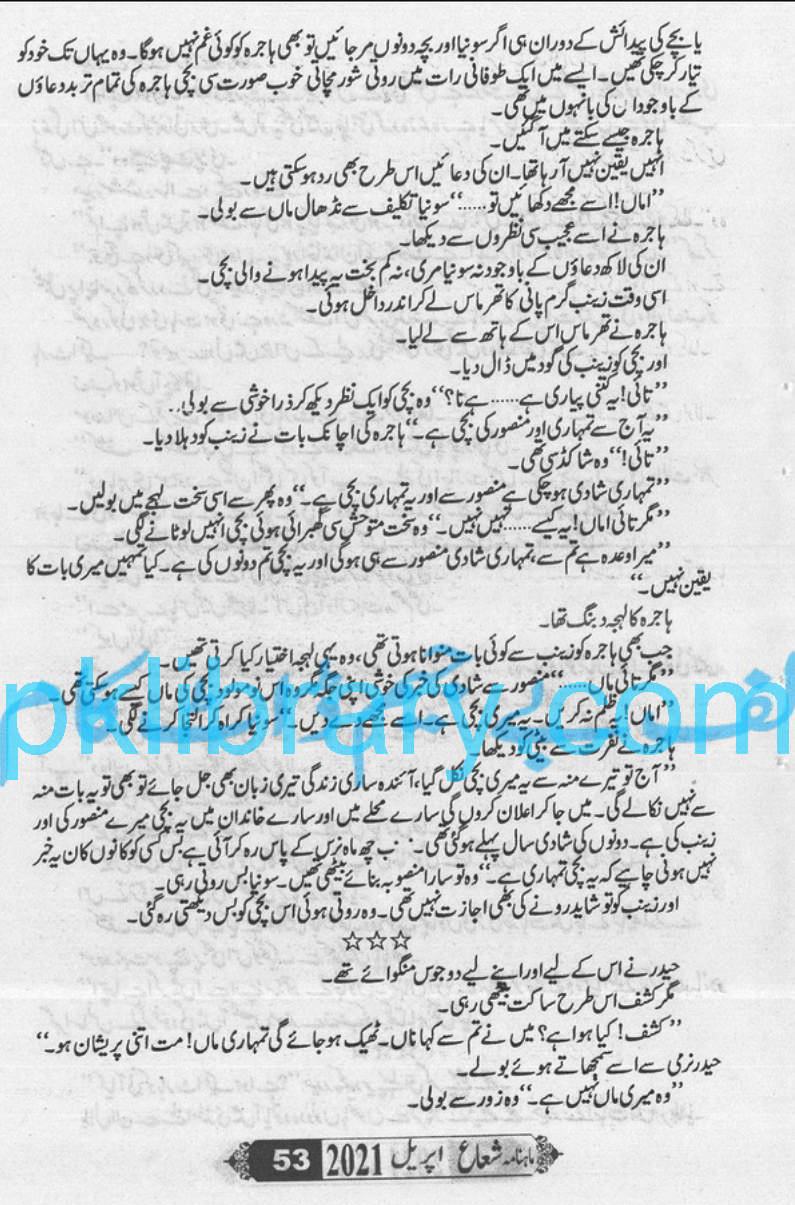 یا بچے کی پیدائش کے دوران ہی اگر سونیا اور بچہ دونوں مر جائیں تو بھی ہاجرہ کو کوئی غم نہیں ہوگا۔ وہ یہاں تک خود کو
تیار کر چکی تھیں۔ ایسے میں ایک طوفانی رات میں روتی شور مچاتی خوب صورت سی بچی ہاجرہ کی تمام تر بددعاؤں
کے باوجود ان کی بانہوں میں تھی۔
ہاجرہ جیسے سکتے میں آ گئیں۔
انہیں یقین نہیں آ رہا تھا۔ ان کی دعائیں اس طرح بھی رد ہوسکتی ہیں۔
”اماں! اسے مجھے دکھائیں تو……“ سونیا تکلیف سے نڈھال ماں سے بولی۔
ہاجرہ نے اسے عجیب سی نظروں سے دیکھا۔
ان کی لاکھ دعاؤں کے باوجود نہ سونیا مری، نہ کم بخت یہ پیدا ہونے والی بچی۔
اسی وقت زینب گرم پانی کا تھرماس لے کر اندر داخل ہوئی۔
ہاجرہ نے تھرماس اس کے ہاتھ سے لے لیا۔
اور بچی کو زینب کی گود میں ڈال دیا۔
”تائی! یہ کتنی پیاری ہے……ہے نا؟“ وہ بچی کو ایک نظر دیکھ کر ذرا خوشی سے بولی۔
”یہ آج سے تمہاری اور منصور کی بچی ہے۔“ ہاجرہ کی اچانک بات نے زینب کو دہلا دیا۔
”تائی!“ وہ شاکڈ سی تھی۔
”تمہاری شادی ہوچکی ہے منصور سے اور یہ تمہاری بچی ہے۔“ وہ پھر سے اسی سخت لہجے میں بولیں۔
”مگر تائی اماں! یہ کیسے……نہیں نہیں۔“ وہ سخت متوحش سی گھبرائی ہوئی بچی انہیں لوٹانے لگی۔
”میرا وعدہ ہے تم سے، تمہاری شادی منصور سے ہی ہوگی اور یہ بچی تم دونوں کی ہے۔ کیا تمہیں میری بات کا
یقین نہیں۔“
ہاجرہ کا لہجہ دبنگ تھا۔
جب بھی ہاجرہ کو زینب سے کوئی بات منوانا ہوتی تھی، وہ یہی لہجہ اختیار کیا کرتی تھیں۔
”مگر تائی ماں……“ منصور سے شادی کی خبر کی خوشی اپنی جگہ مگر وہ اس نوزولود بچی کی ماں کیسے ہوسکتی تھی۔
”اماں! یہ ظلم نہ کریں۔ یہ میری بچی ہے۔ اسے مجھے دے دیں۔“ سونیا کراہ کر التجا کرنے لگی۔
ہاجرہ نے نفرت سے بیٹی کو دیکھا۔
pklibrary.com
”آج تو تیرے منہ سے یہ میری بچی نکل گیا، آئندہ ساری زندگی تیری زبان بھی جل جائے تو بھی تو یہ بات منہ
سے نہیں نکالے گی۔ میں جا کر اعلان کروں گی سارے محلے میں اور سارے خاندان میں یہ بچی میرے منصور کی اور
زینب کی ہے۔ دونوں کی شادی سال پہلے ہوگئی تھی۔ چھ ماہ نرس کے پاس رہ کر آئی ہے بس کسی کو کانوں کان یہ خبر
نہیں ہونی چاہیے کہ یہ بچی تمہاری ہے۔“ وہ تو سارا منصوبہ بنائے بیٹھی تھیں۔ سونیا بس روتی رہی۔
اور زینب کو تو شاید رونے کی بھی اجازت نہیں تھی۔ وہ روتی ہوئی اس بچی کو بس دیکھتی رہ گئی۔
☆☆☆
حیدر نے اس کے لیے اور اپنے لیے دو جوس منگوائے تھے۔
مگر کشف اس طرح ساکت بیٹھی رہی۔
”کشف! کیا ہوا ہے؟ میں نے تم سے کہا ناں۔ ٹھیک ہو جائے گی تمہاری ماں! مت اتنی پریشان ہو۔“
حیدر نرمی سے اسے سمجھاتے ہوئے بولے۔
”وہ میری ماں نہیں ہے۔“ وہ زور سے بولی۔
ماہنامہ شعاع اپریل 2021 53